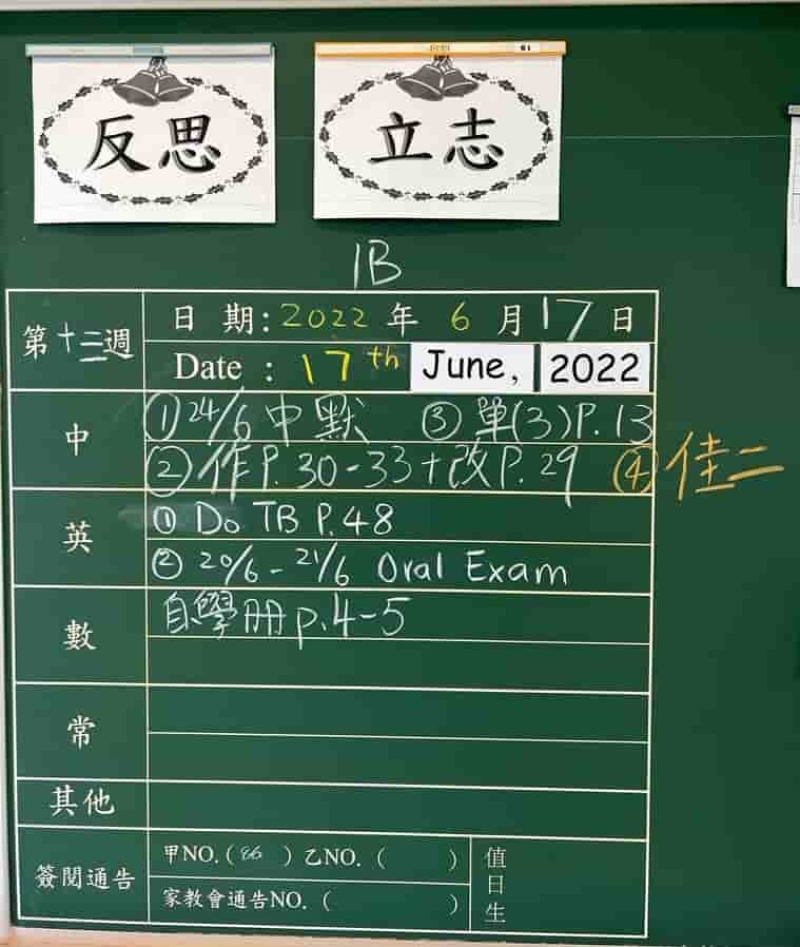 反思
立志
1B
第十三週
日 期: 2022 年 6 月 17 日
Date : 17th June, 2022
中
① 24/6 中默 ③ 單(3)P.13
② 作P.30-33+改P.29 ④ 佳二
英
① Do TB P.48
② 20/6 - 21/6 Oral Exam
數
自學册 p.4-5
常
其他
簽閱通告
甲NO.( 86 ) 乙NO.( )
家教會通告NO.( )
值日生